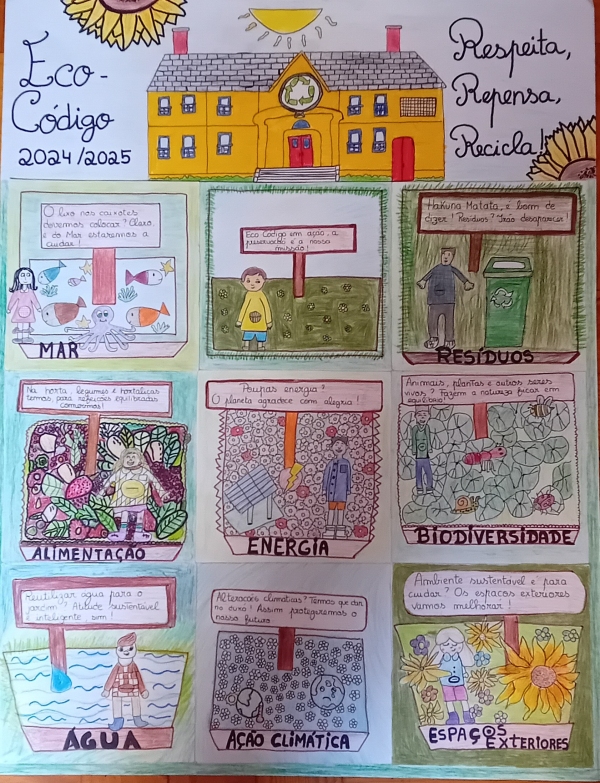 Eco-
Código
2024/2025
Respeita,
Repensa,
Recicla!
O lixo nos caixotes
devemos colocar? Claro,
e do Mar estaremos a
cuidar!
MAR
Eco Código em ação, a
preservação é a nossa
missão!
Hakuna Matata, é bom de
dizer! Resíduos? Irão desaparecer!
RESÍDUOS
Na horta, legumes e hortaliças
temos, para refeições equilibradas
comermos!
ALIMENTAÇÃO
Poupas energia?
O planeta agradece com alegria!
ENERGIA
Animais, plantas e outros seres
vivos? Fazem a natureza ficar em
equilíbrio!
BIODIVERSIDADE
Reutilizar água para o
jardim? Atitude sustentável
e inteligente, sim!
ÁGUA
Alterações climáticas? Temos que estar
no auxo! Assim protegeremos o
nosso futuro
AÇÃO CLIMÁTICA
Ambiente sustentável é para
cuidar? Os espaços exteriores
vamos melhorar!
ESPAÇOS
EXTERIORES